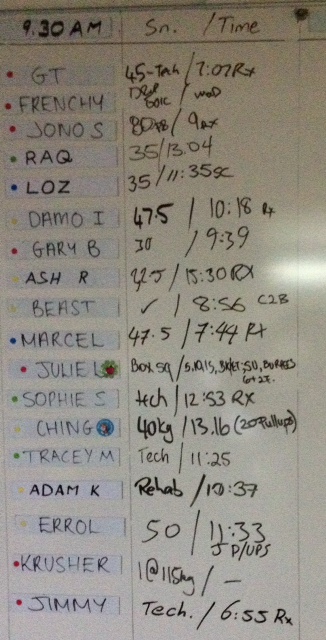 9.30 AM Sn. / Time
GT 45-Tech / 7:07 Rx
FRENCHY / WOD
JONO S 80kg / 9 Rx
RAQ 35 / 13.04
LOZ 35 / 11:35 SC
DAMO I 47.5 / 10:18 Rx
GARY B 30 / 9:39
ASH R 32.5 / 15:30 RX
BEAST ✓ / 8:56 C2B
MARCEL 47.5 / 7:44 RX
JULIE L Box sq /
SOPHIE S tech / 12:53 RX
CHING 40kg / 13.16 (20 Pullups)
TRACEY M Tech / 11:25
ADAM K Rehab / 10:37
ERROL 50 / 11:33
J P/UPS
KRUSHER 1@115kg / –
JIMMY Tech. / 6:55 Rx